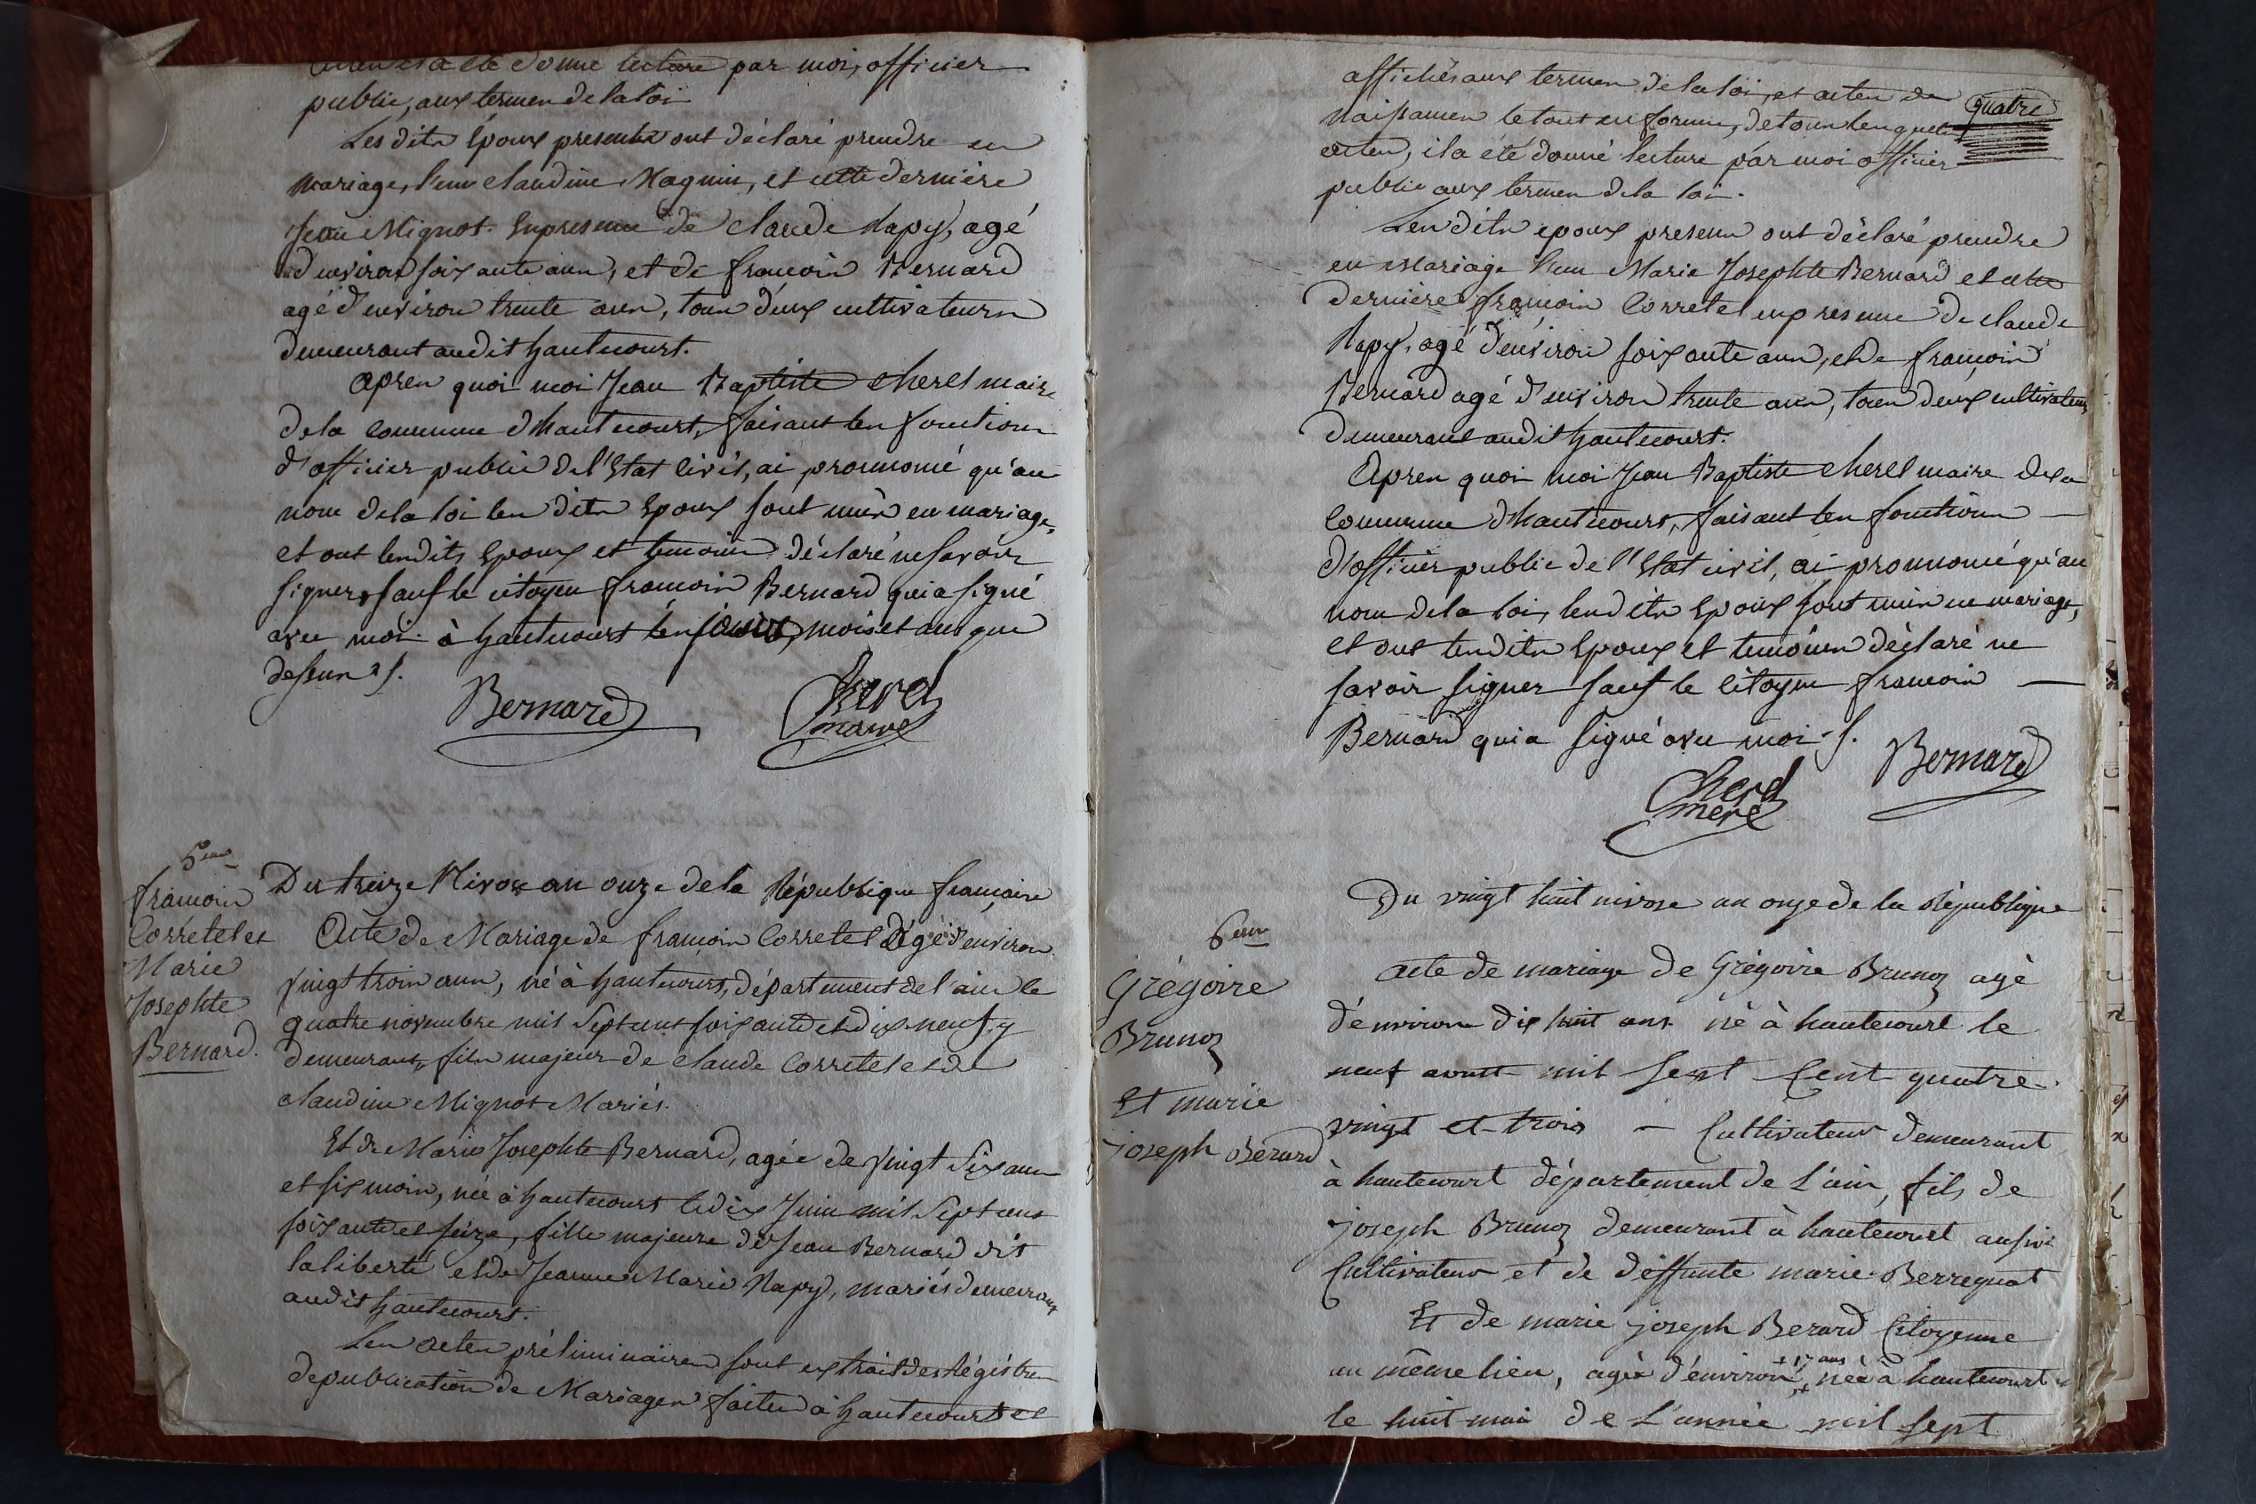 a été donné lecture par moi, officier
public, aux termes de la loi
Les dits Epoux presents ont déclaré prendre en
mariage, l'un claudine Magnin, et cette derniere
Jean Mignot. En presence de claude Napy, agé
d'environ soixante ans, et de francois Bernard
agé d'environ trente ans, tous deux cultivateurs
demeurant audit hautecourt.
apres quoi moi Jean Baptiste cherel maire
de la commune d'hautecourt, faisant les fonctions
d'officier public de l'Etat civil, ai prononcé qu'au
nom de la loi les dits Epoux sont unis en mariage,
et ont lesdits Epoux et temoins déclaré ne savoir
signer, sauf le citoyen francois Bernard qui a signé
avec moi. à hautecourt les jour, mois et an que
dessus ./.
Bernard
Cherel
maire
5eme
francois
Corretel et
Marie
Josephte
Bernard.
Du treize Nivose an onze de la République française
Acte de Mariage de francois Corretel agé d'environ
vingt trois ans, né à hautecourt, département de l'ain le
quatre novembre mil sept cent soixante et dix neuf, y
demeurant, fils majeur de claude Corretel et de
claudine Mignot Mariés.
Et de Marie Josephte Bernard, agée de vingt six ans
et six mois, née à hautecourt le dix Juin mil sept cent
soixante et seize, fille majeure de Jean Bernard dit
la liberté et de Jeanne Marie Napy, mariés demeurant
audit hautecourt.
Les actes préliminaires sont extrait des Régistres
de publication de Mariages faites à hautecourt et
affichés aux termes de la loi, et actes de
quatre
naissances le tout en forme, de tous lesquels
actes, il a été donné lecture par moi officier
public aux termes de la loi.
Les dits epoux presens ont déclaré prendre
en Mariage l'un Marie Josephte Bernard et cette
derniere francois Corretel en presence de claude
Napy, agé d'environ soixante ans, et de francois
Bernard agé d'environ trente ans, tous deux cultivateurs
demeurant audit hautecourt.
Apres quoi moi Jean Baptiste cherel maire de la
Commune d'hautecourt, faisant les fonctions
d'officier public de l'Etat civil, ai prononcé qu'au
nom de la loi, lesdits Epoux sont unis en mariage,
et ont lesdits Epoux et temoins déclaré ne
savoir signer sauf le citoyen francois
Bernard qui a signé avec moi ./.
Bernard
Cherel
mere
Du vingt huit nivose an onze de la République
6eme
Grégoire
Brunoz
Et marie
joseph Berard
acte de mariage de Grégoire Brunoz agé
d'environ dix huit ans né à hautecourt le
neuf avout mil sept Cent quatre
vingt et trois - Cultivateur demeurant
à hautecourt département de L'ain, fils de
joseph Brunoz demeurant à hautecourt aussi
Cultivateur et de deffunte marie Berreguat
Et de marie joseph Berard Citoyenne
au même lieu, agée d'environ + 17 ans née à hautecourt
le huit mai de L'année mil sept